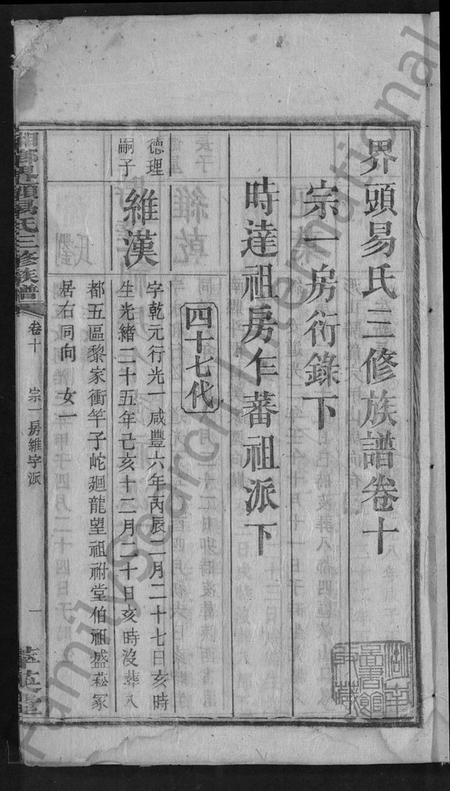 界頭易氏三修族譜卷十
宗一房衍錄下
時達祖房仁蕃祖派下
四十七代
德理
嗣子
維漢
字乾元行光一咸豐六年丙辰二月二十七日亥時
生光緒二十五年己亥十二月二十日亥時沒葬入
都五區黎家衝竿子蛇廻龍望祖祔堂伯祖盛菘冢
居右同向 女一
界頭易氏三修族譜
卷十
宗一房維字派
一
萃英堂
湖南
圖書館
FamilySearch International